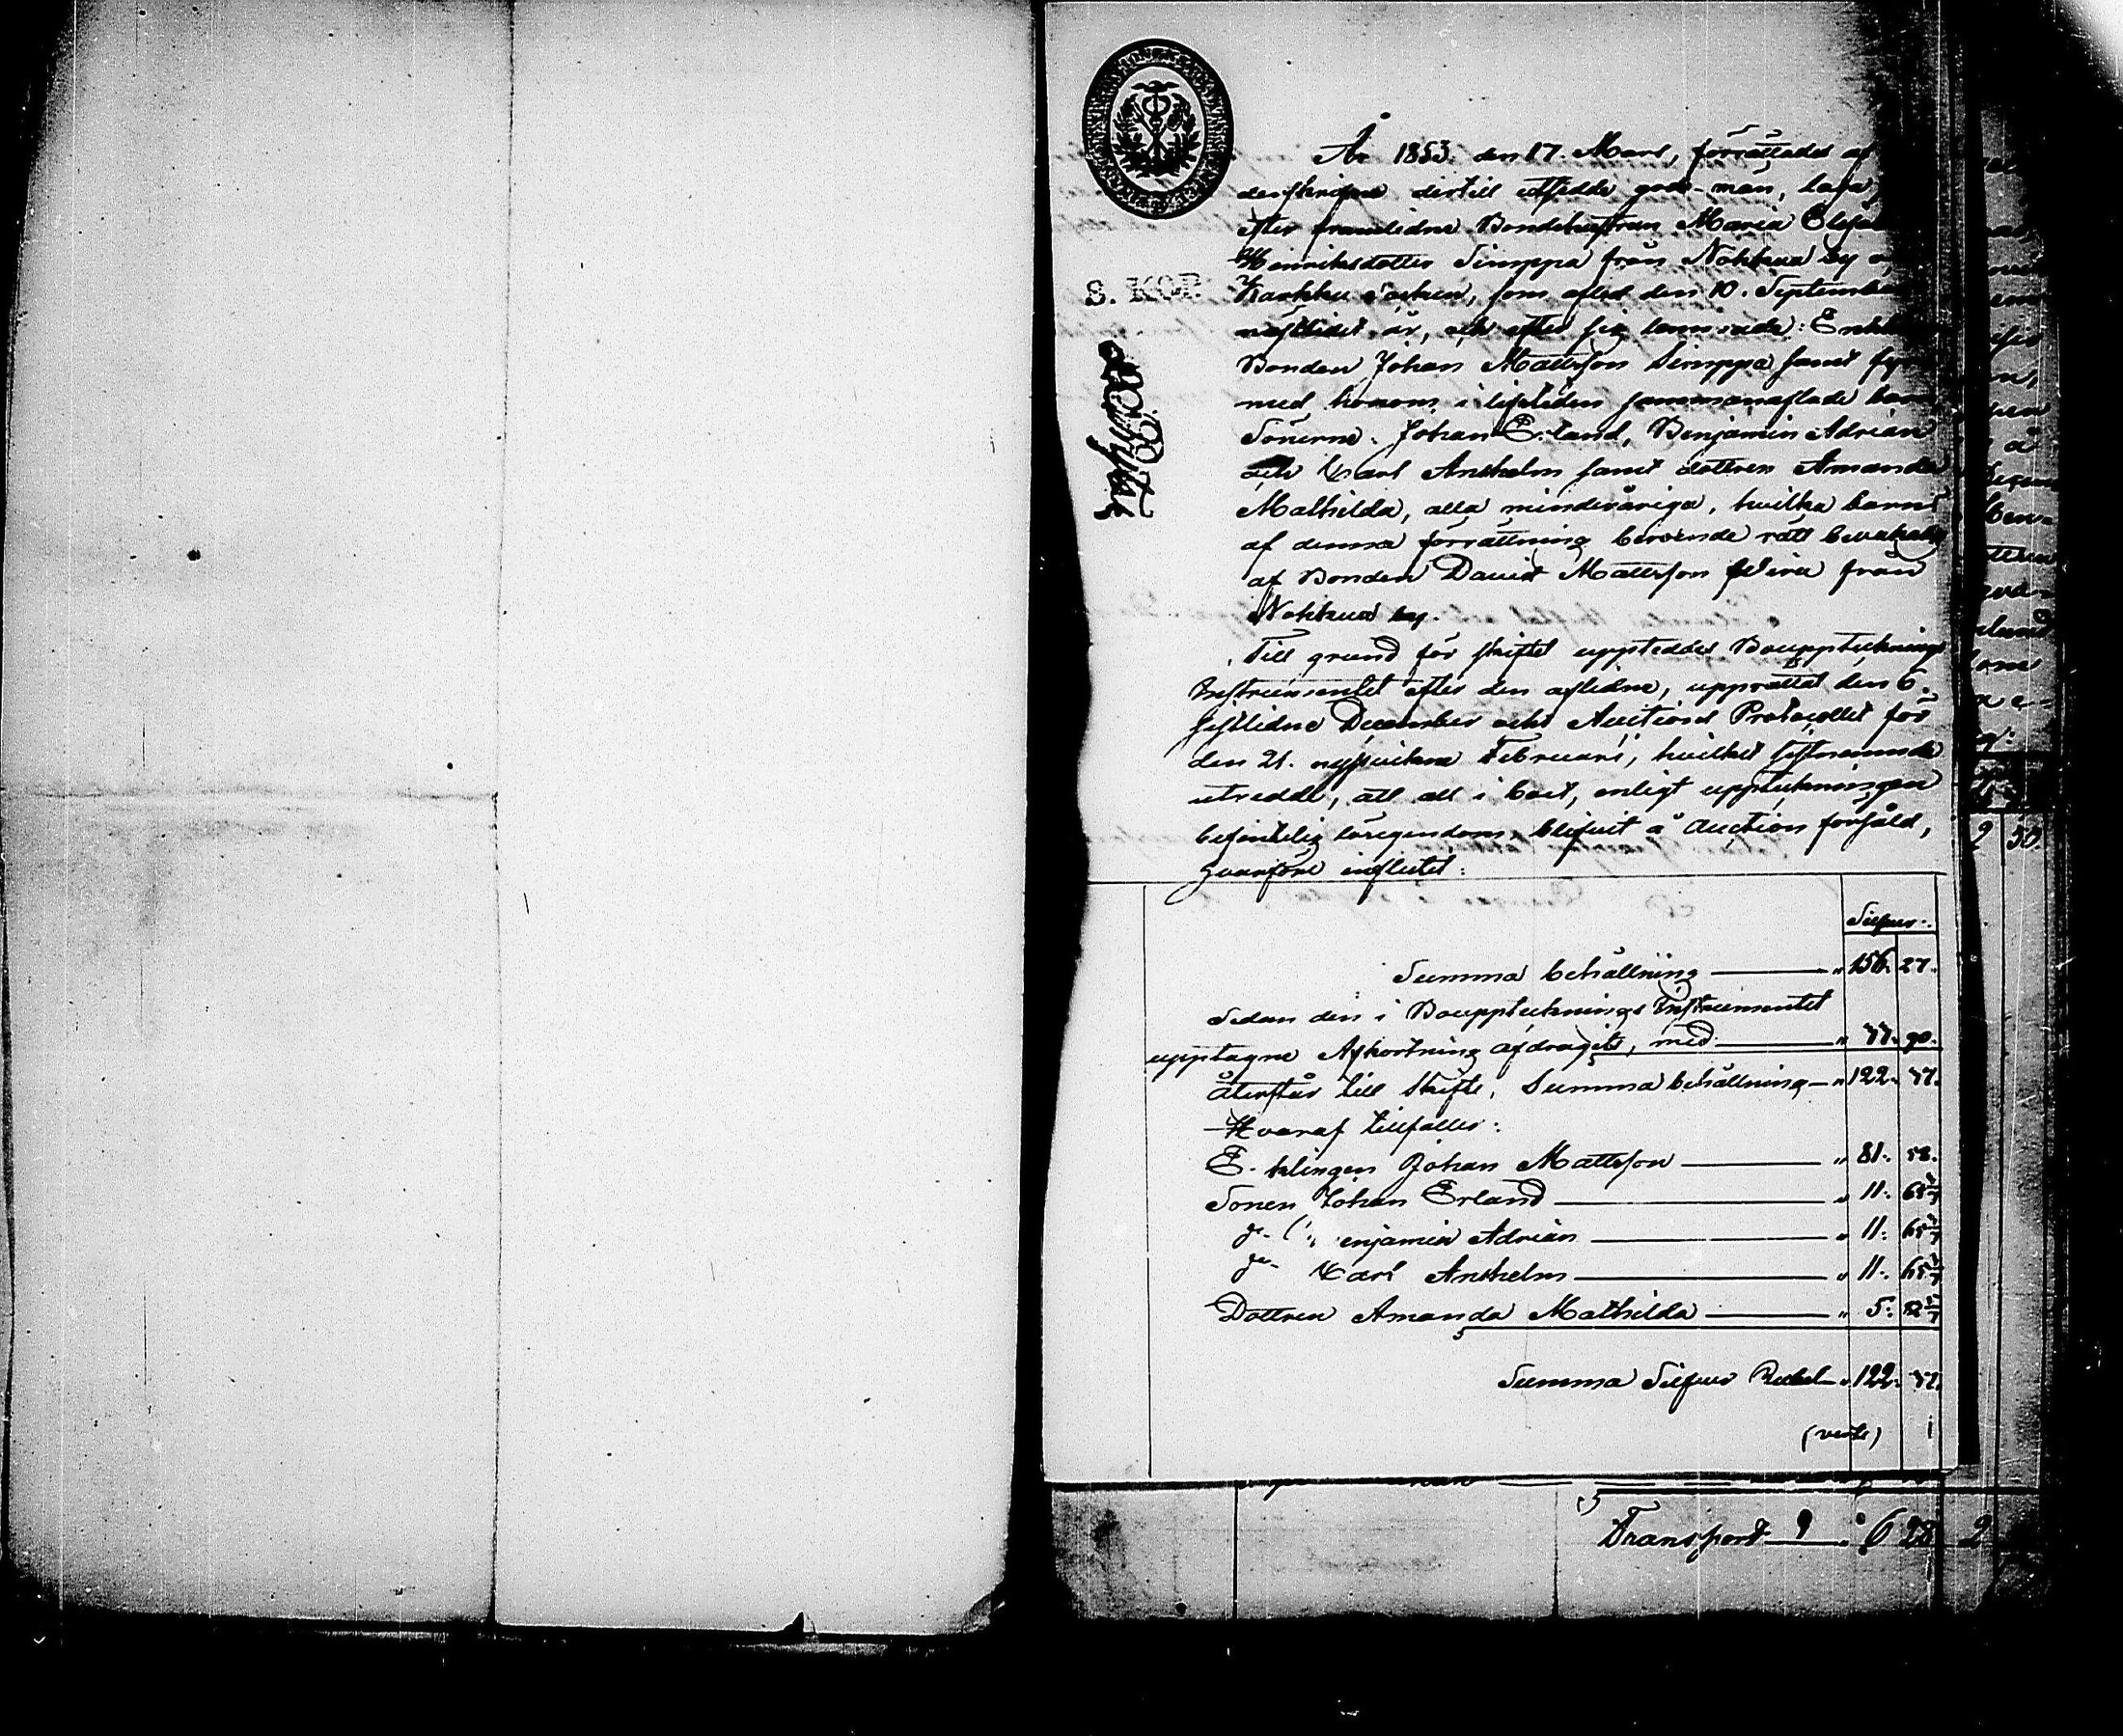 År 1853. den 17. Mars, förrättades af
derskrifne dertill utsedde gode-män, laga
efter framlidne Bondehustrun Maria Elisa
Henriksdotter Simppa från Nohkua by o
Karkku Socken, som afled den 10. September
nästlidet år, och efter sig lemnade: Enkl
Bonden Johan Mattsson Simppa samt fyra
med honom i lifstiden sammanaflade barn,
Sönerne Johan Erland, Benjamin Adrian
och Carl Anshelm samt dottren Amanda
Mathilda, alla minderåriga, hvilka barns
af denna förrättning beroende rätt bevakades
af Bonden David Mattsson från
Nohkua by.
Till grund för skiftet uppteddes Bouppteknings
Instrumentet efter den aflidne, upprättat den 6.
sistlidne December och Auctions Protocollet för
den 21. nyssvikne Februarii, hvilket sistnemnde
utredde, att all i boet, enligt uppteckningen
befintelig lösegendom, blifvit å Auction försåld,
hvarföre influtet:
Silfver:
Summa behållning — " 156. 27.
Sedan den i Bouppteknings Instrumentet
upptagne Afkortning afdragits, med — " 90.
återstår till skifte, Summa behållning — " 122. 37.
Hvaraf tillfaller:
E. klingen Johan Mattsson — " 81. 58.
Sonen Johan Erland — " 11. 65
d:o enjamin Adrian — " 11. 65
d:o Carl Anshelm — " 11. 65
Dottren Amanda Mathilda — " 5. 82
Summa Silfver Rubel — " 122. 37.
(verte)
S. KOP.
Transport — 6 28 2
2 50.